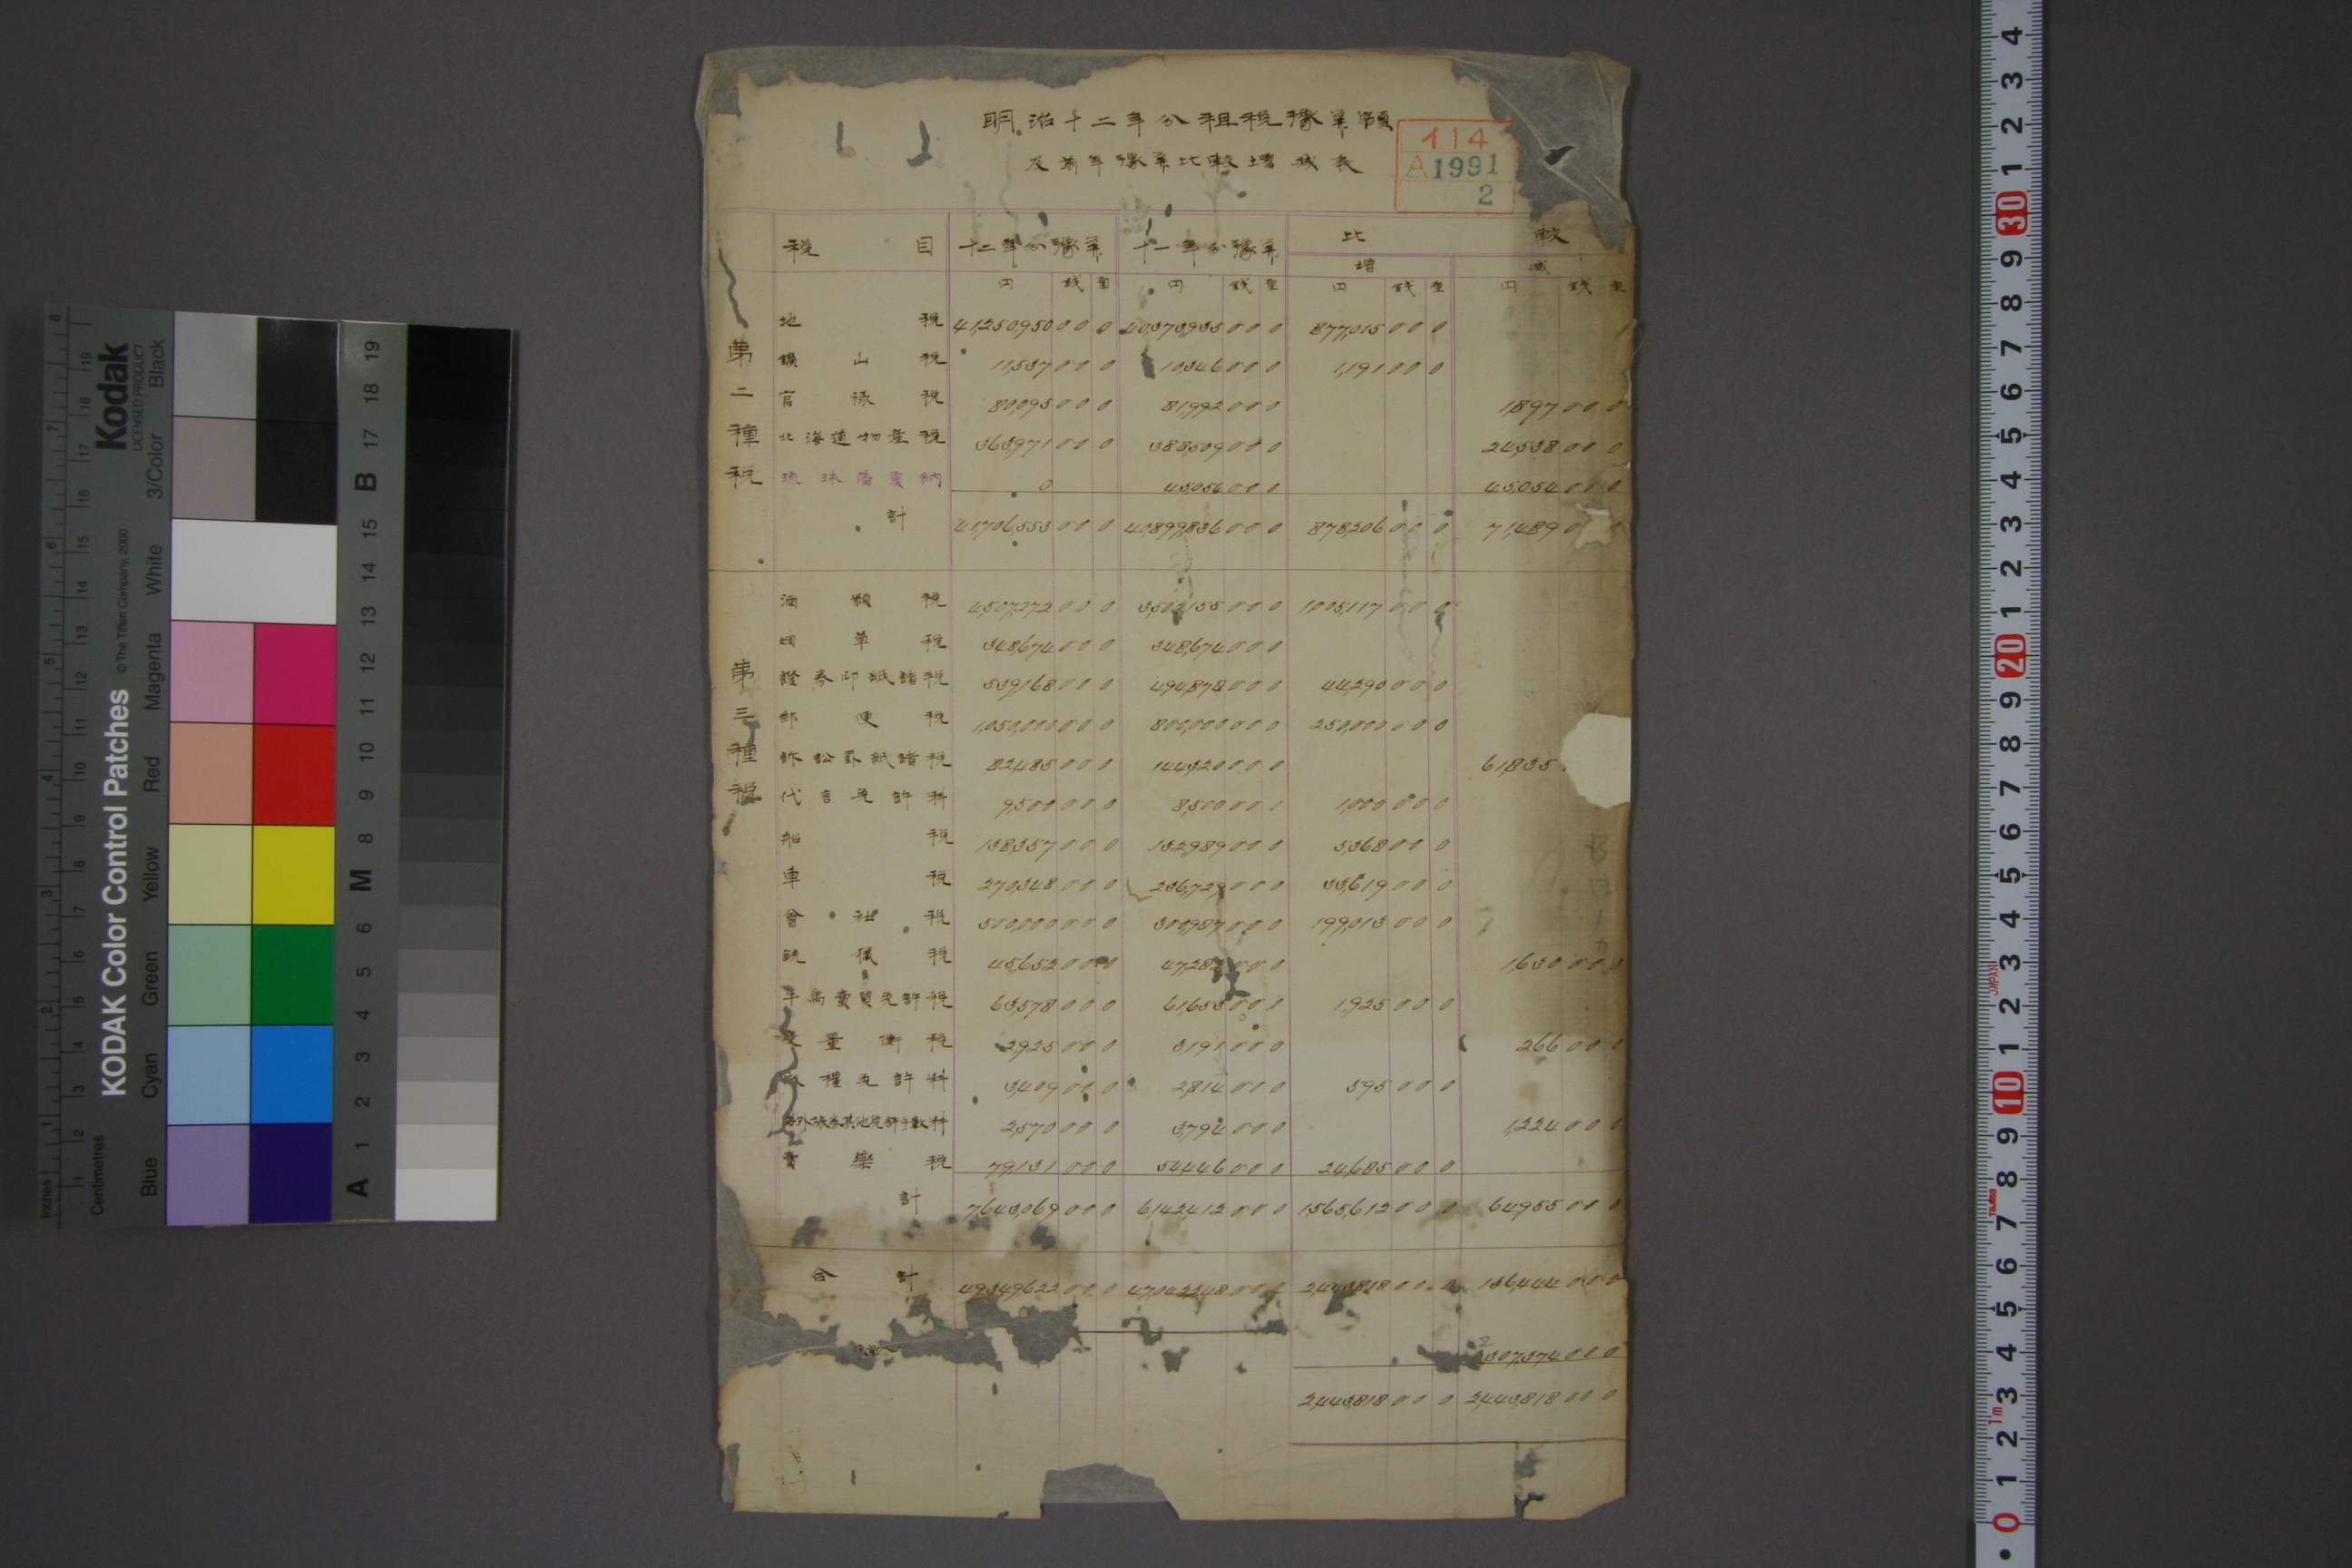 明治十二年分租税豫算額
及前年豫算比較増減表
イ14
A1991
2
税目 十二年分豫算 十一年分豫算 比較
増 減
円 銭 厘 円 銭 厘 円 銭 厘 円 銭 厘
第二種税
地税 41,250,950 00 0 40,373,935 00 0 877,015 00 0
鑛山税 11,537 00 0 10,346 00 0 1,191 00 0
官禄税 80,095 00 0 81,992 00 0 1,897 00 0
北海道物産税 363,971 00 0 388,509 00 0 24,538 00 0
琉球藩貢納 0 45,054 00 0 45,054 00 0
計 41,706,553 00 0 40,899,836 00 0 878,206 00 0 71,489 0
第三種税
酒類税 4,507,272 00 0 3,502,155 00 0 1,005,117 00 0
烟草税 348,674 00 0 348,674 00 0
證券印紙諸税 539,168 00 0 494,878 00 0 44,290 00 0
郵便税 1,050,000 00 0 800,000 00 0 250,000 00 0
訴訟罫紙諸税 82,485 00 0 144,320 00 0 61,835
代言免許料 9,500 00 0 8,500 00 0 1,000 00 0
船税 138,357 00 0 132,989 00 0 5,368 00 0
車税 270,348 00 0 236,729 00 0 33,619 00 0
會社税 500,000 00 0 300,987 00 0 199,013 00 0
銃猟税 45,652 00 0 47,282 00 0 1,630 00 0
牛馬賣買免許税 63,578 00 0 61,653 00 0 1,925 00 0
度量衡税 2,925 00 0 3,191 00 0 266 00 0
權免許料 3,409 00 0 2,814 00 0 595 00 0
海外旅券其他免許手數料 2,570 00 0 3,794 00 0 1,224 00 0
賣藥税 79,131 00 0 54,446 00 0 24,685 00 0
計 7,643,069 00 0 6,142,412 00 0 1,565,612 00 0 64,955 00 0
合計 49,349,622 00 0 47,042,248 00 0 2,443,818 00 0 136,444 00 0
2,307,374 00 0
2,443,818 00 0 2,443,818 00 0
KODAK Color Control Patches
© The Tiffen Company, 2000
Kodak
LICENSED PRODUCT
Blue Cyan Green Yellow Red Magenta White 3/Color Black
Inches
Centimetres
A 1 2 3 4 5 6 M 8 9 10 11 12 13 14 15 B 17 18 19